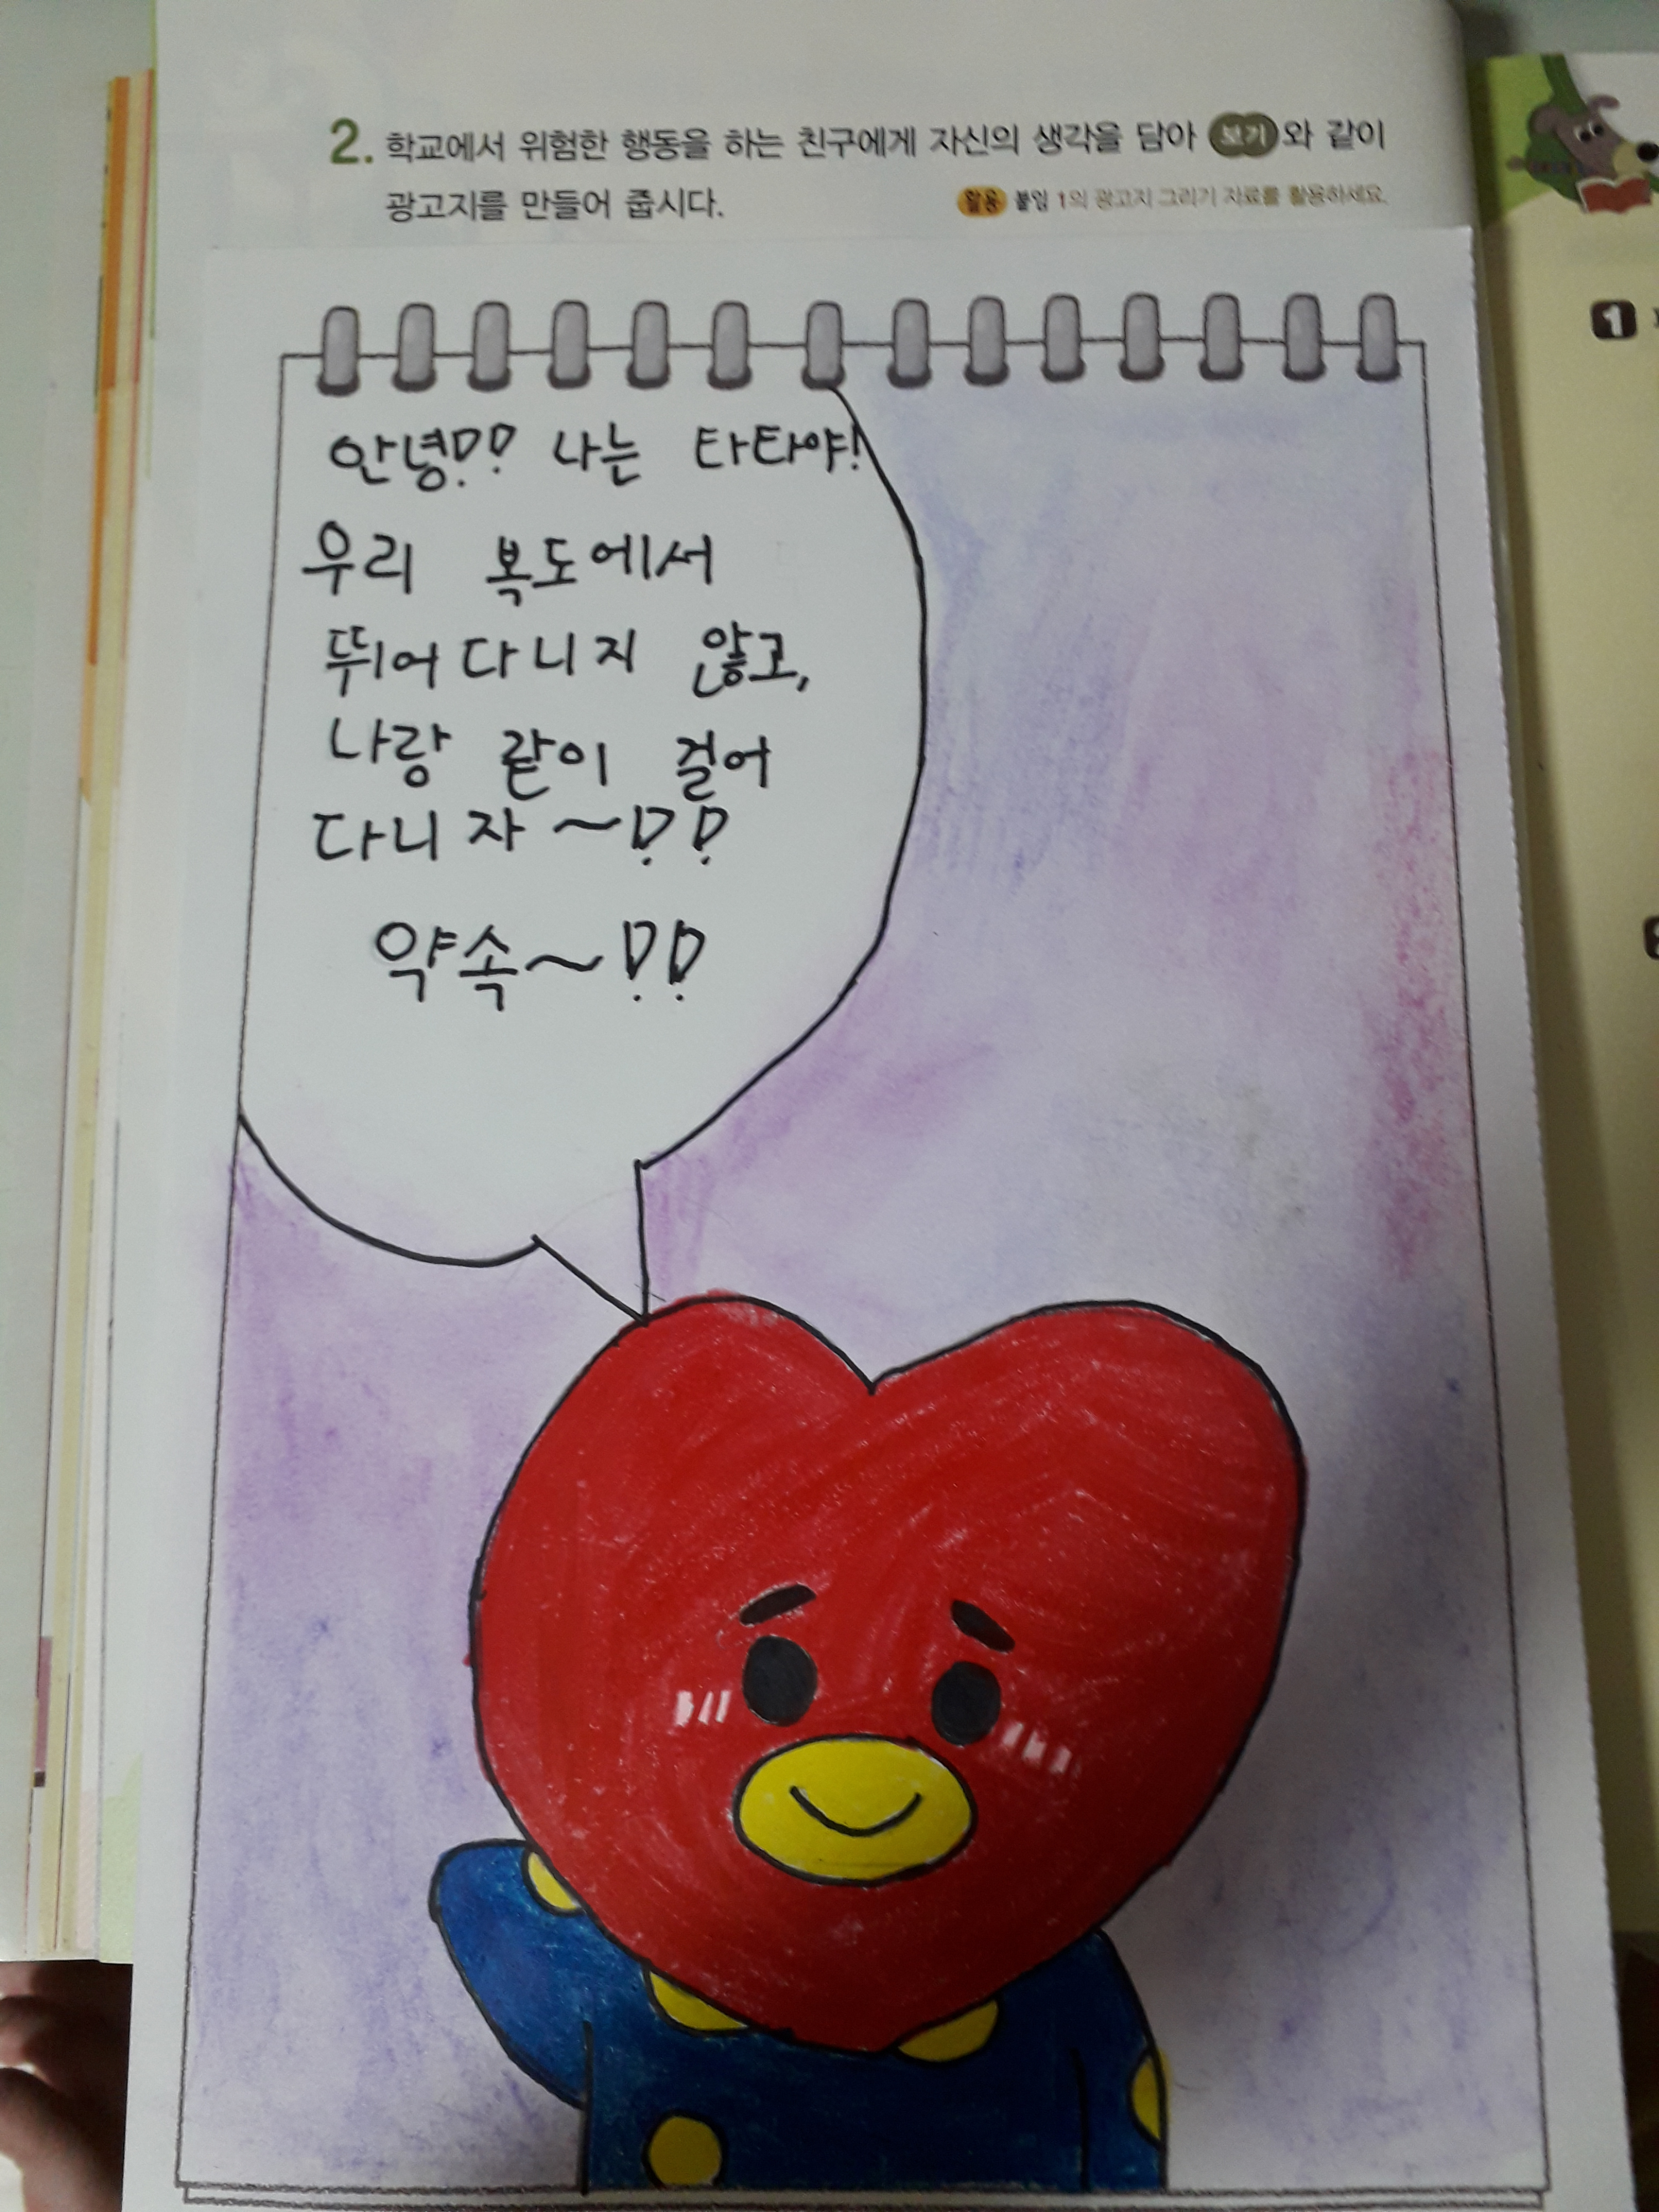 2. 학교에서 위험한 행동을 하는 친구에게 자신의 생각을 담아 보기와 같이
광고지를 만들어 줍시다.
활용 붙임 1의 광고지 그리기 자료를 활용하세요.
안녕!! 나는 타타야!
우리 복도에서
뛰어다니지 않고,
나랑 같이 걸어
다니자~!!
약속~!!
1